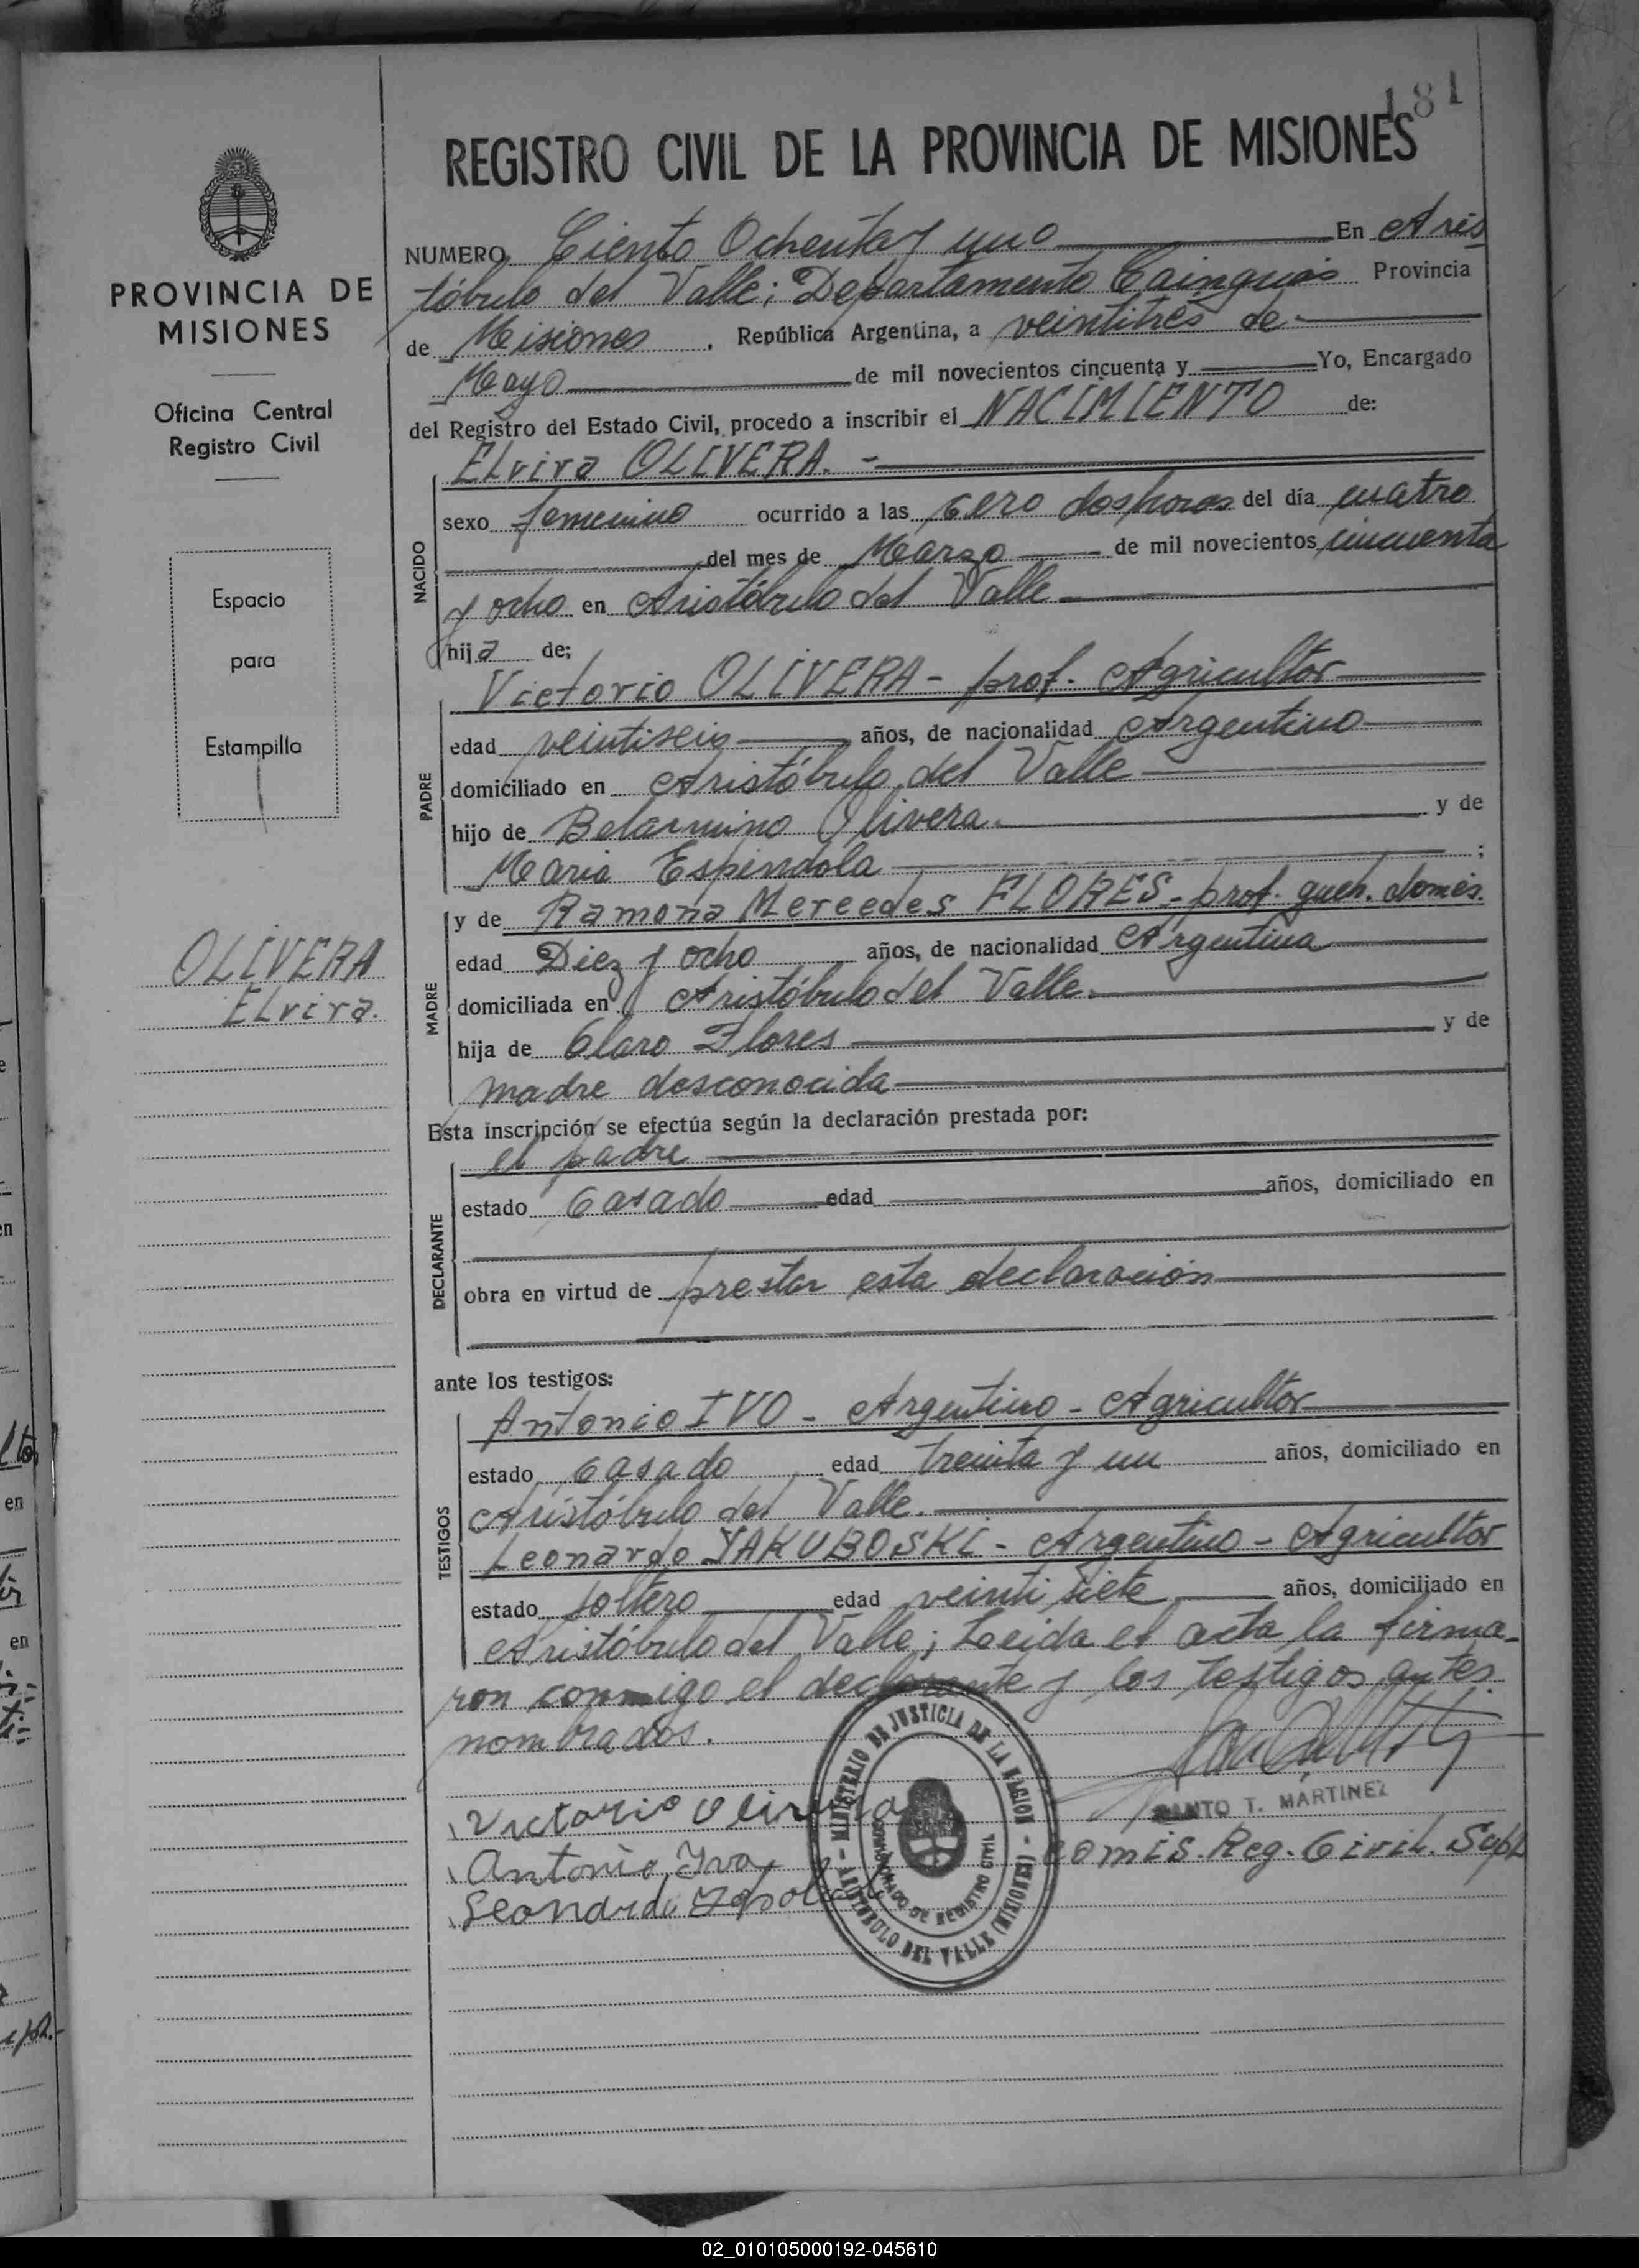 181
REGISTRO CIVIL DE LA PROVINCIA DE MISIONES
PROVINCIA DE
MISIONES
Oficina Central
Registro Civil
Espacio
para
Estampilla
OLIVERA
Elvira.
NUMERO Ciento Ochenta y uno En Aris
tóbulo del Valle; Departamento Cainguás Provincia
de Misiones, República Argentina, a veintitres de
Mayo de mil novecientos cincuenta y Yo, Encargado
del Registro del Estado Civil, procedo a inscribir el NACIMIENTO de:
NACIDO
Elvira OLIVERA. -
sexo femenino ocurrido a las cero dos horas del día cuatro
del mes de Marzo de mil novecientos cincuenta
y ocho en Aristóbulo del Valle
hija de:
PADRE
Victorio OLIVERA - prof. Agricultor
edad veintiseis años, de nacionalidad Argentino
domiciliado en Aristóbulo del Valle
hijo de Belarmino Olivera. y de
Maria Espindola ;
MADRE
y de Ramona Mercedes FLORES - prof. queh. domés.
edad Diez y ocho años, de nacionalidad Argentina
domiciliada en Aristóbulo del Valle.
hija de Claro Flores y de
madre desconocida
Esta inscripción se efectúa según la declaración prestada por:
DECLARANTE
el padre
estado Casado edad años, domiciliado en
obra en virtud de prestar esta declaración
ante los testigos:
TESTIGOS
Antonio IVO - Argentino - Agricultor
estado Casado edad treinta y un años, domiciliado en
Aristóbulo del Valle.
Leonardo YAKUBOSKI - Argentino - Agricultor
estado soltero edad veinti siete años, domiciliado en
Aristóbulo del Valle; Leida el acta la firma-
ron conmigo el declarante y los testigos antes
nombrados.
Victorio Olivera
Antonio Ivo
Leonardo
MINISTERIO DE JUSTICIA DE LA NACION - ARISTOBULO DEL VALLE (MISIONES) -
ENCARGADO DE REGISTRO CIVIL
SANTO T. MARTINEZ
Comis. Reg. Civil. Supl
02_010105000192-045610